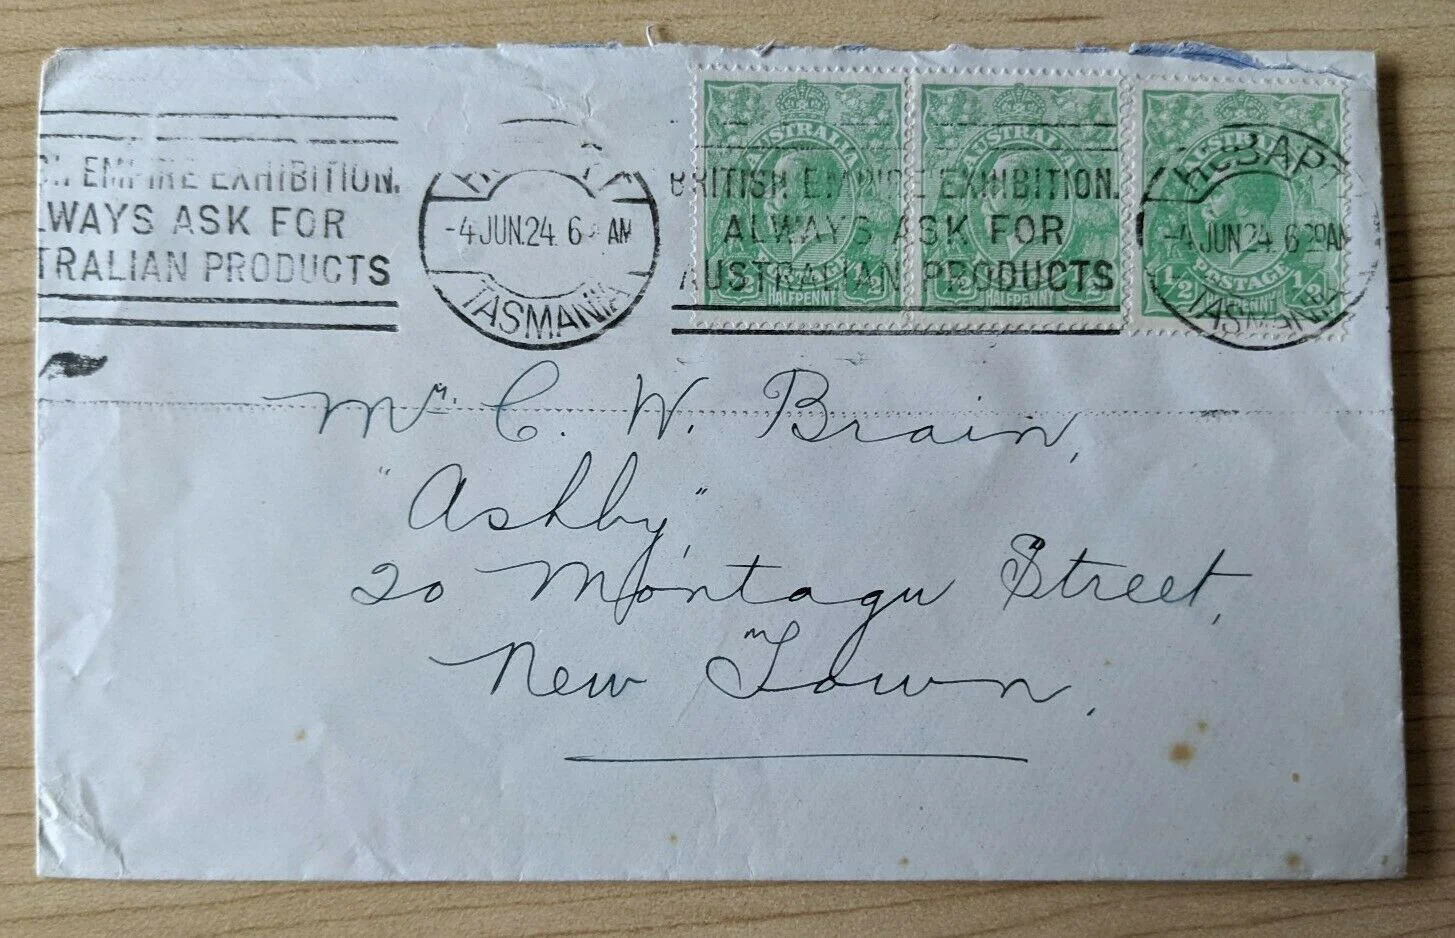 EMPIRE EXHIBITION.
LWAYS ASK FOR
TRALIAN PRODUCTS
-4 JUN.24. 6 AM
TASMANIA
BRITISH EMPIRE EXHIBITION.
ALWAYS ASK FOR
AUSTRALIAN PRODUCTS
AUSTRALIA
1/2 HALFPENNY 1/2
AUSTRALIA
1/2 HALFPENNY 1/2
AUSTRALIA
POSTAGE
1/2 1/2
HOBART
-4 JUN.24. 6 AM
TASMANIA
Mr. C. W. Brain,
"Ashby",
20 Montagu Street,
New Town.